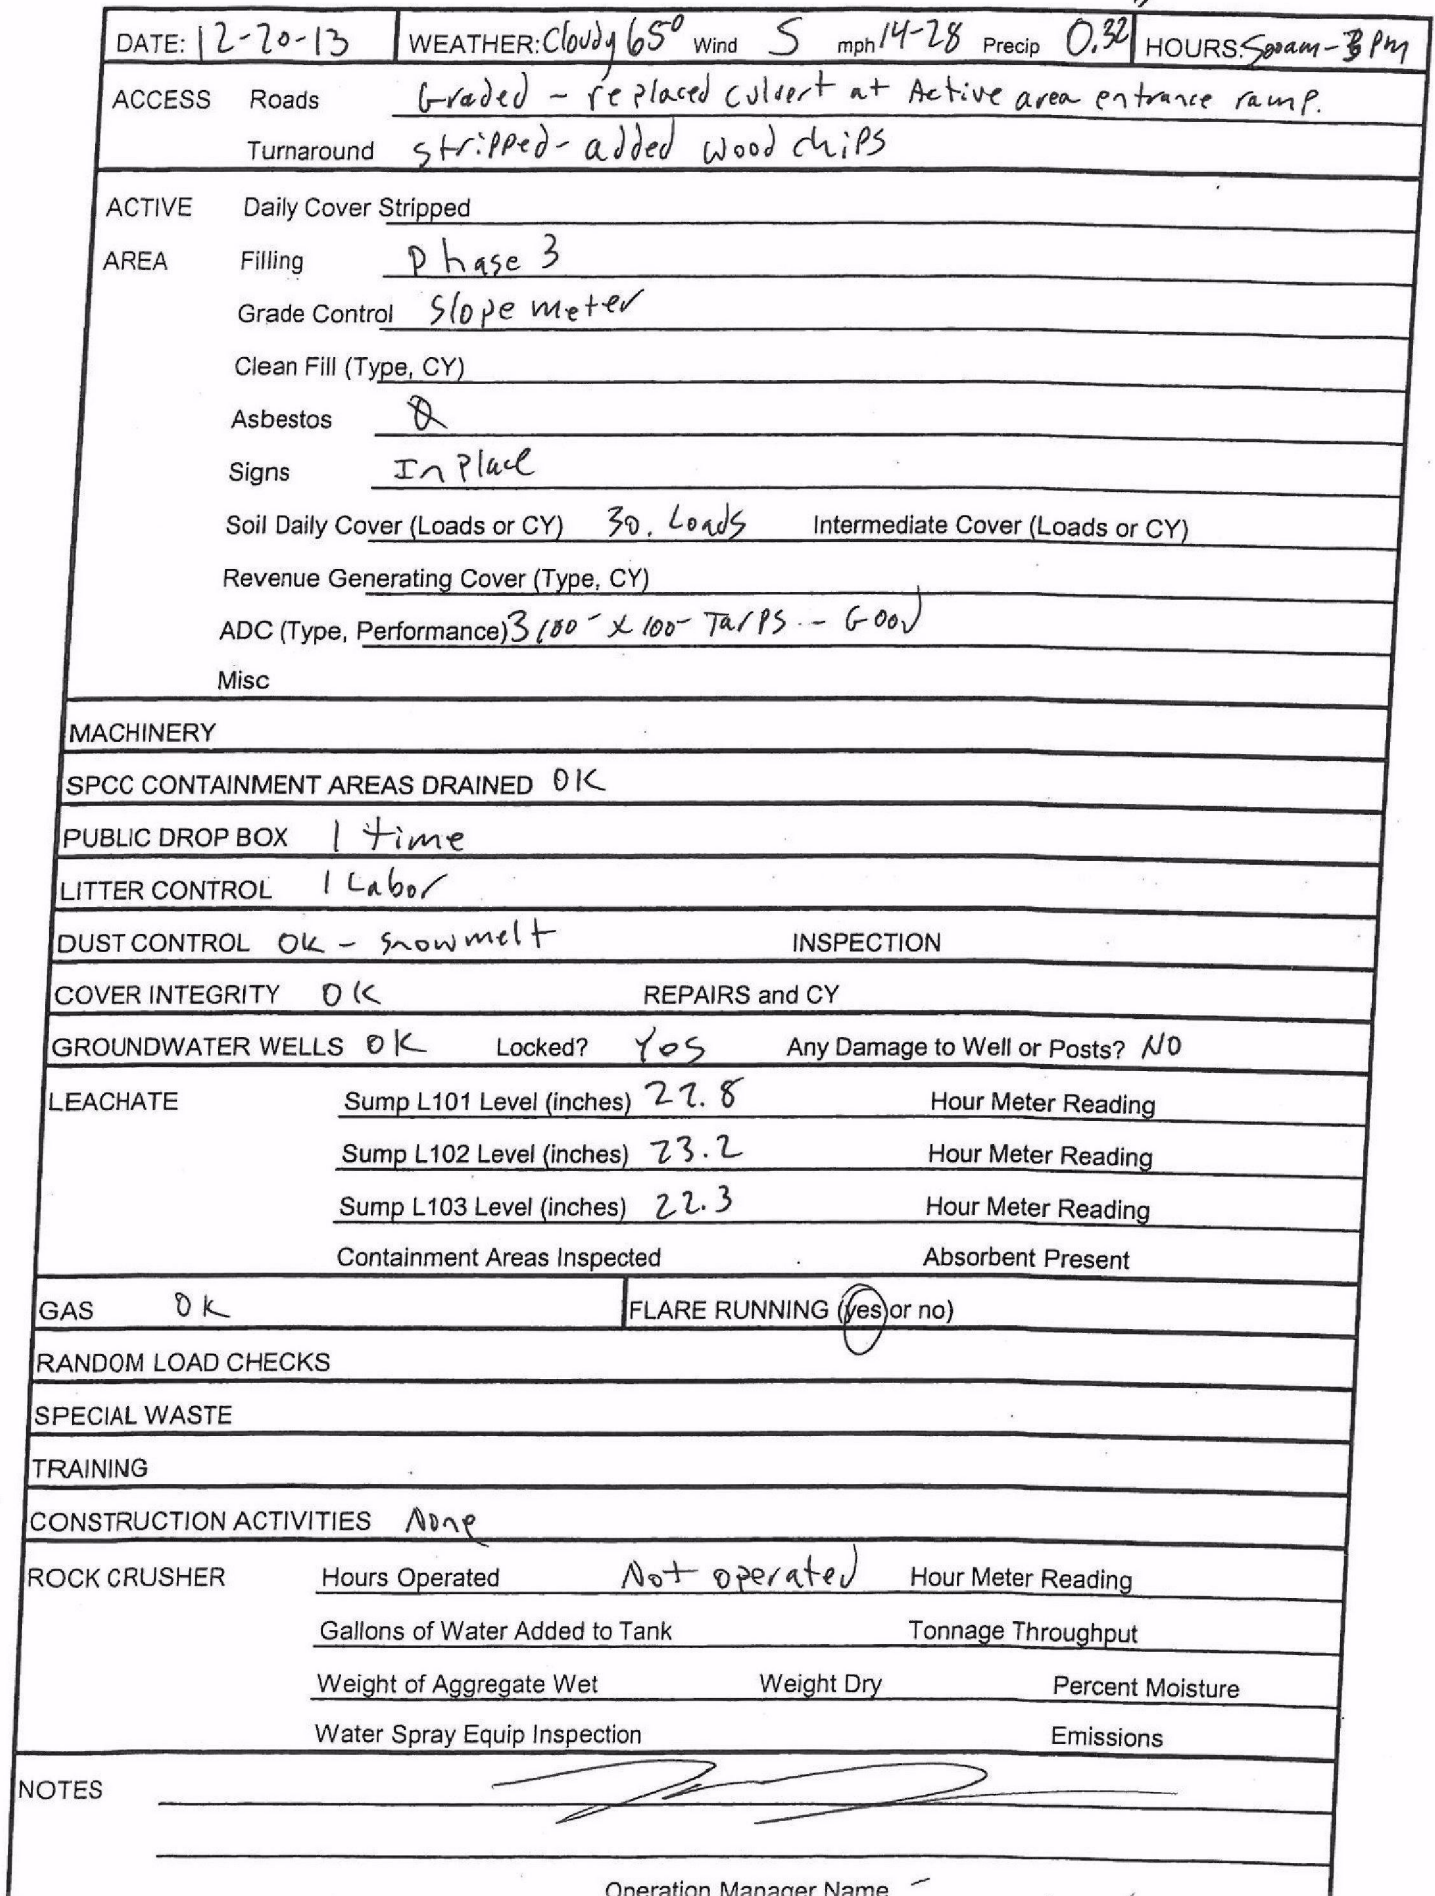 DATE: 12-20-13 WEATHER: Cloudy 65° Wind S mph 14-28 Precip 0.32 HOURS: 500am-3PM
ACCESS Roads Graded - replaced culvert at Active area entrance ramp.
Turnaround stripped - added wood chips
ACTIVE Daily Cover Stripped
AREA Filling Phase 3
Grade Control Slope meter
Clean Fill (Type, CY)
Asbestos 0
Signs In Place
Soil Daily Cover (Loads or CY) 30. Loads Intermediate Cover (Loads or CY)
Revenue Generating Cover (Type, CY)
ADC (Type, Performance) 3 100- x 100- Tarps - Good
Misc
MACHINERY
SPCC CONTAINMENT AREAS DRAINED OK
PUBLIC DROP BOX 1 time
LITTER CONTROL 1 Labor
DUST CONTROL OK - snowmelt INSPECTION
COVER INTEGRITY OK REPAIRS and CY
GROUNDWATER WELLS OK Locked? Yes Any Damage to Well or Posts? NO
LEACHATE Sump L101 Level (inches) 22.8 Hour Meter Reading
Sump L102 Level (inches) 23.2 Hour Meter Reading
Sump L103 Level (inches) 22.3 Hour Meter Reading
Containment Areas Inspected Absorbent Present
GAS OK FLARE RUNNING (yes or no)
RANDOM LOAD CHECKS
SPECIAL WASTE
TRAINING
CONSTRUCTION ACTIVITIES None
ROCK CRUSHER Hours Operated Not operated Hour Meter Reading
Gallons of Water Added to Tank Tonnage Throughput
Weight of Aggregate Wet Weight Dry Percent Moisture
Water Spray Equip Inspection Emissions
NOTES
Operation Manager Name